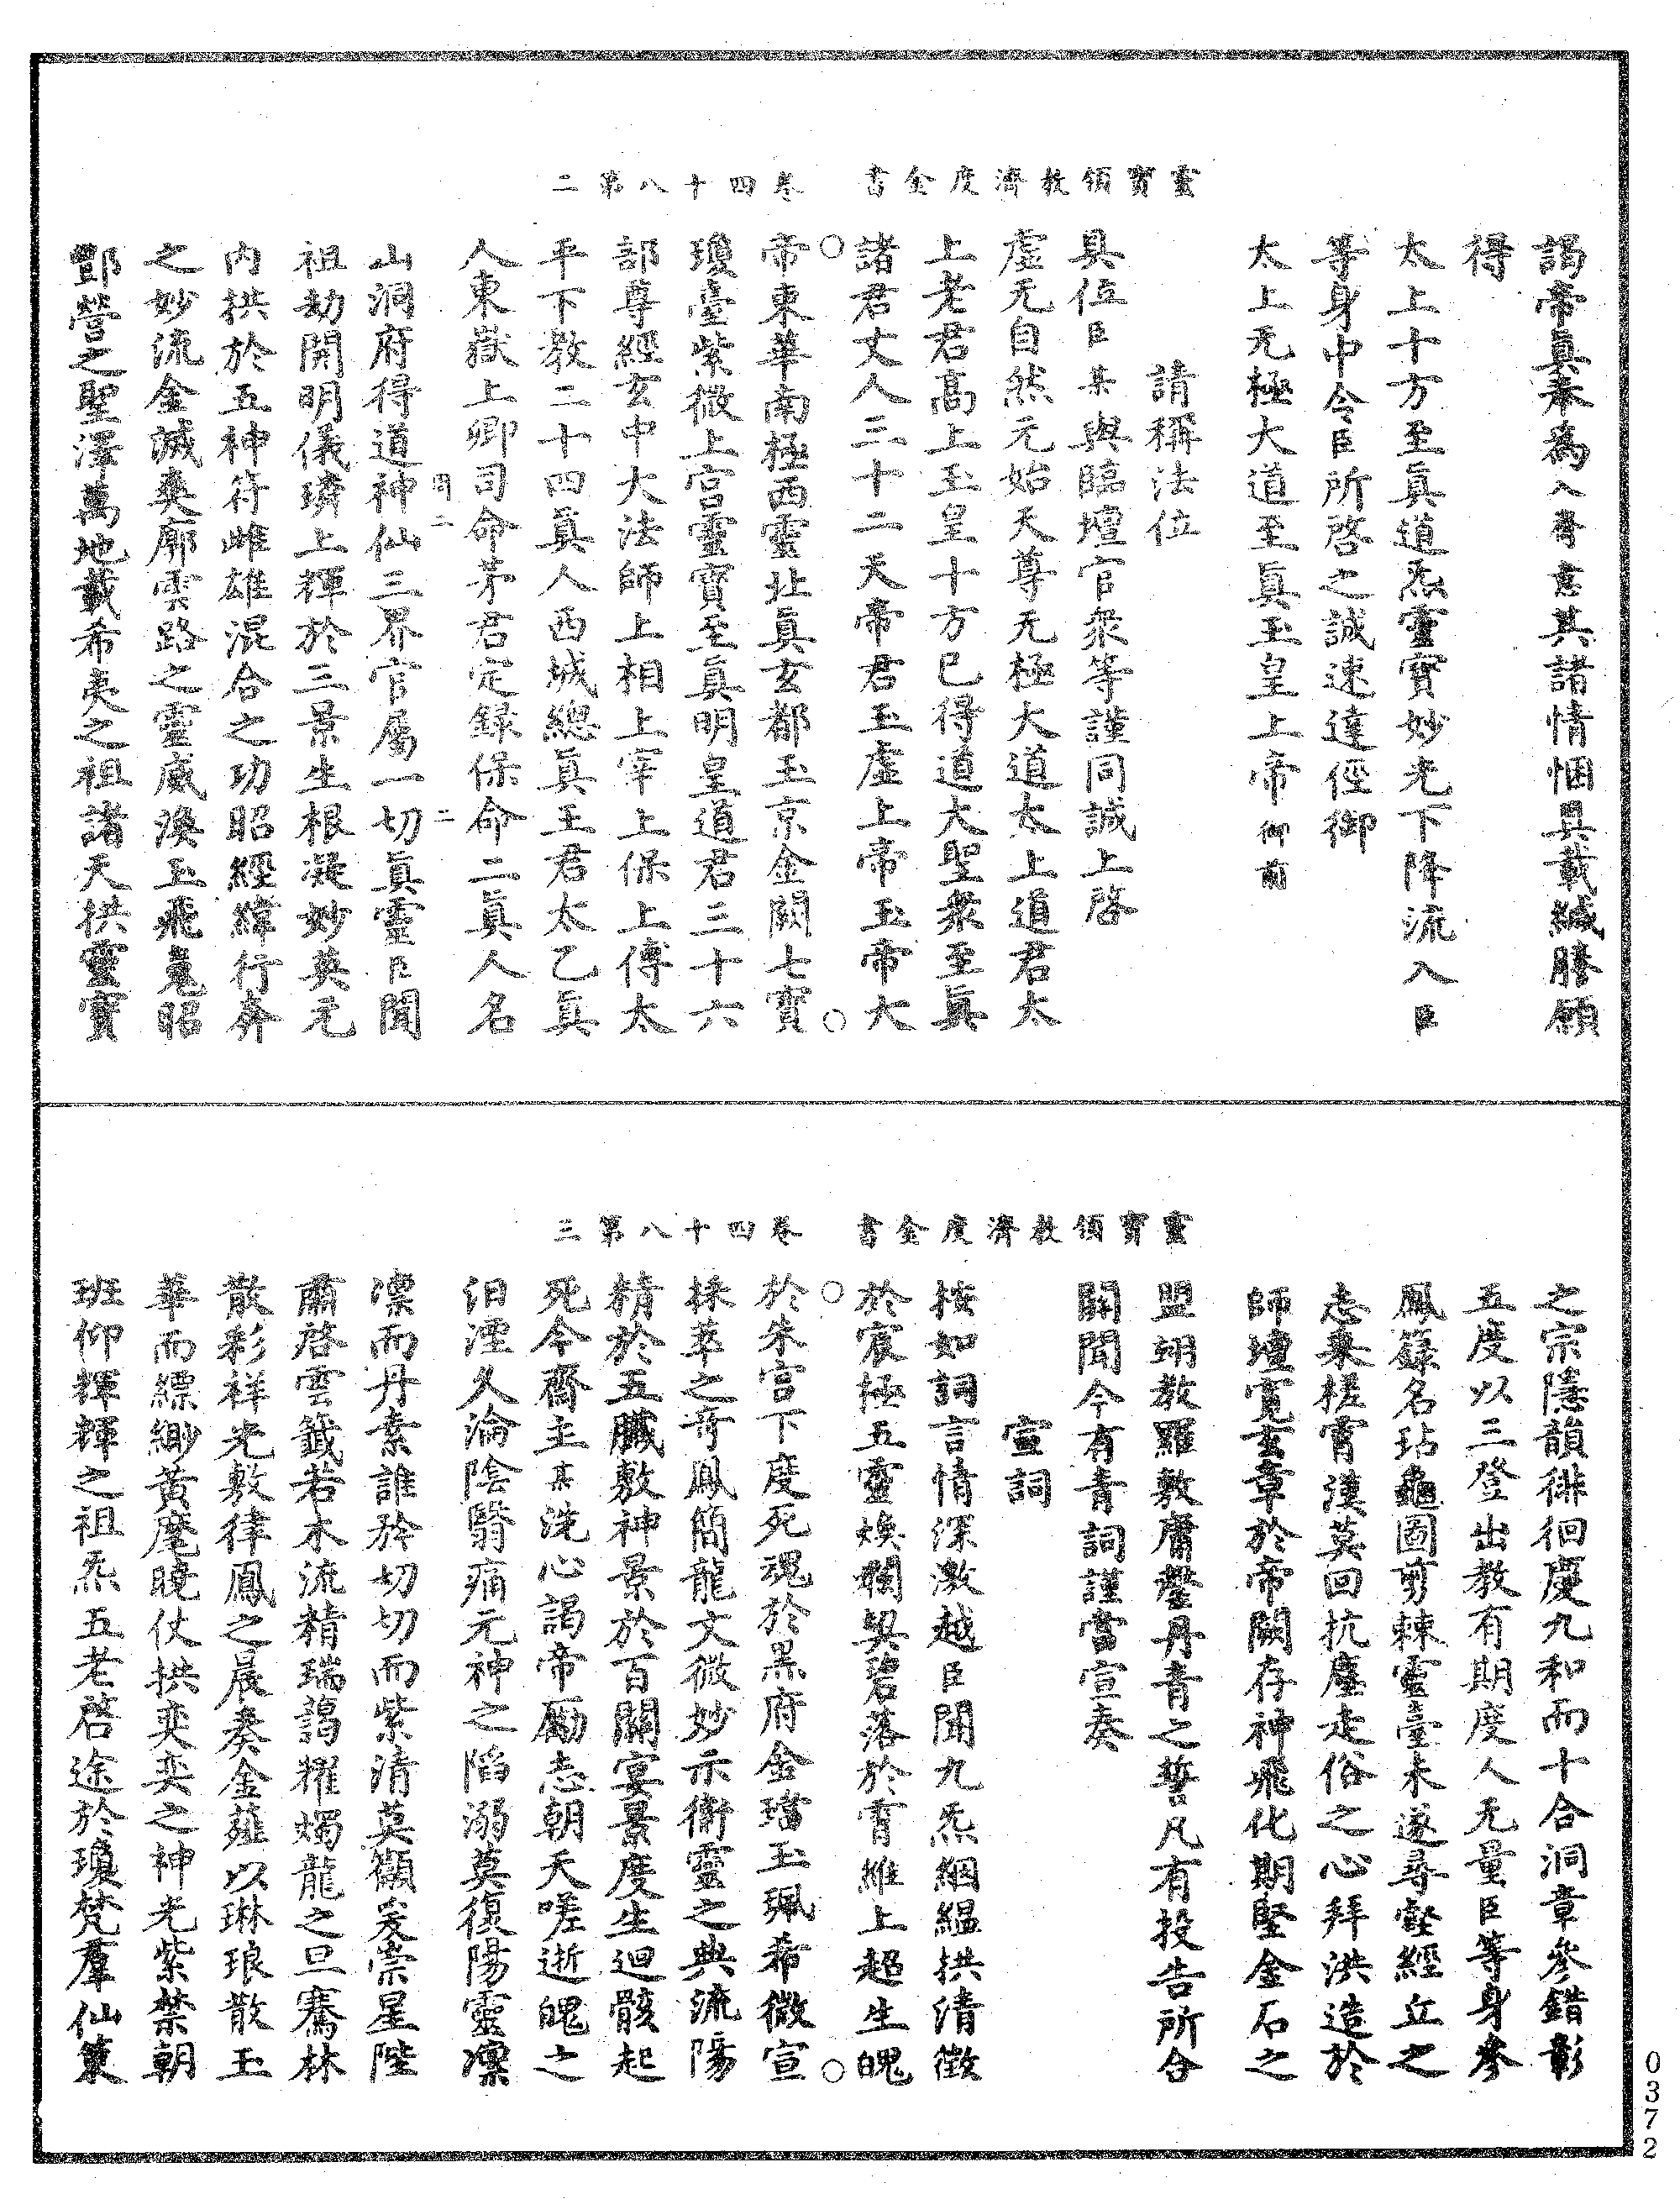 靈寶領教濟度金書　卷四十八第二
謁帝眞奉爲入齊意其諸情悃具載緘謄願
得
太上十方至眞道炁靈寶妙光下降流入臣
等身中令臣所啓之誠速達徑御
太上无極大道至眞玉皇上帝御前
請稱法位
具位臣某與臨壇官衆等謹同誠上啓
虛无自然元始天尊无極大道太上道君太
上老君高上玉皇十方已得道大聖衆至眞
諸君丈人三十二天帝君玉虛上帝玉帝大
帝東華南極西靈北眞玄都玉京金闕七寶
瓊臺紫微上宮靈寶至眞明皇道君三十六
部尊經玄中大法師上相上宰上保上傅太
平下教二十四眞人西城總眞王君太乙眞
人東嶽上卿司命茅君定錄保命二眞人名
山洞府得道神仙三界官屬一切眞靈臣聞
祖劫開明儀璘上輝於三景生根凝妙英元
內拱於五神符雌雄混合之功昭經緯行奔
之妙流金諴奭廓雲路之靈威渙玉飛鬼昭
酆營之聖澤萬地載希夷之祖諸天拱靈寶
靈寶領教濟度金書　卷四十八第三
之宗隱韻徘徊慶九和而十合洞章參錯彰
五度以三登出教有期度人无量臣等身參
鳳籙名玷龜圖剪棘靈臺未遂尋壑經丘之
志乗槎霄漢莫回抗塵走俗之心拜洪造於
師壇寬玄章於帝闕存神飛化期堅金石之
盟翊教羅敷庸罄丹青之誓凡有投告所合
關聞今有青詞謹當宣奏
宣詞
按如詞言情深激越臣聞九炁絪縕拱清徵
於宸極五靈煥爛與碧落於霄維上超生魄
於朱宮下度死魂於黑府金璫玉珮希微宣
採萃之奇鳳簡龍文微妙示衛靈之典流陽
精於五臟敷神景於百關宴景度生迴骸起
死今齋主某洗心謁帝勵志朝天嗟逝魄之
汨湮久淪陰翳痛元神之陷溺莫復陽靈凛
凛而丹素誰於切切而紫清莫顯爰崇星陛
肅啓雲籤若木流精瑞藹耀燭龍之旦騫林
散彩祥光敷律鳳之晨奏金薤以琳琅散玉
華而縹緲黃麾曉仗拱奕奕之神光紫禁朝
班仰輝輝之祖炁五老啓途於瓊梵羣仙策